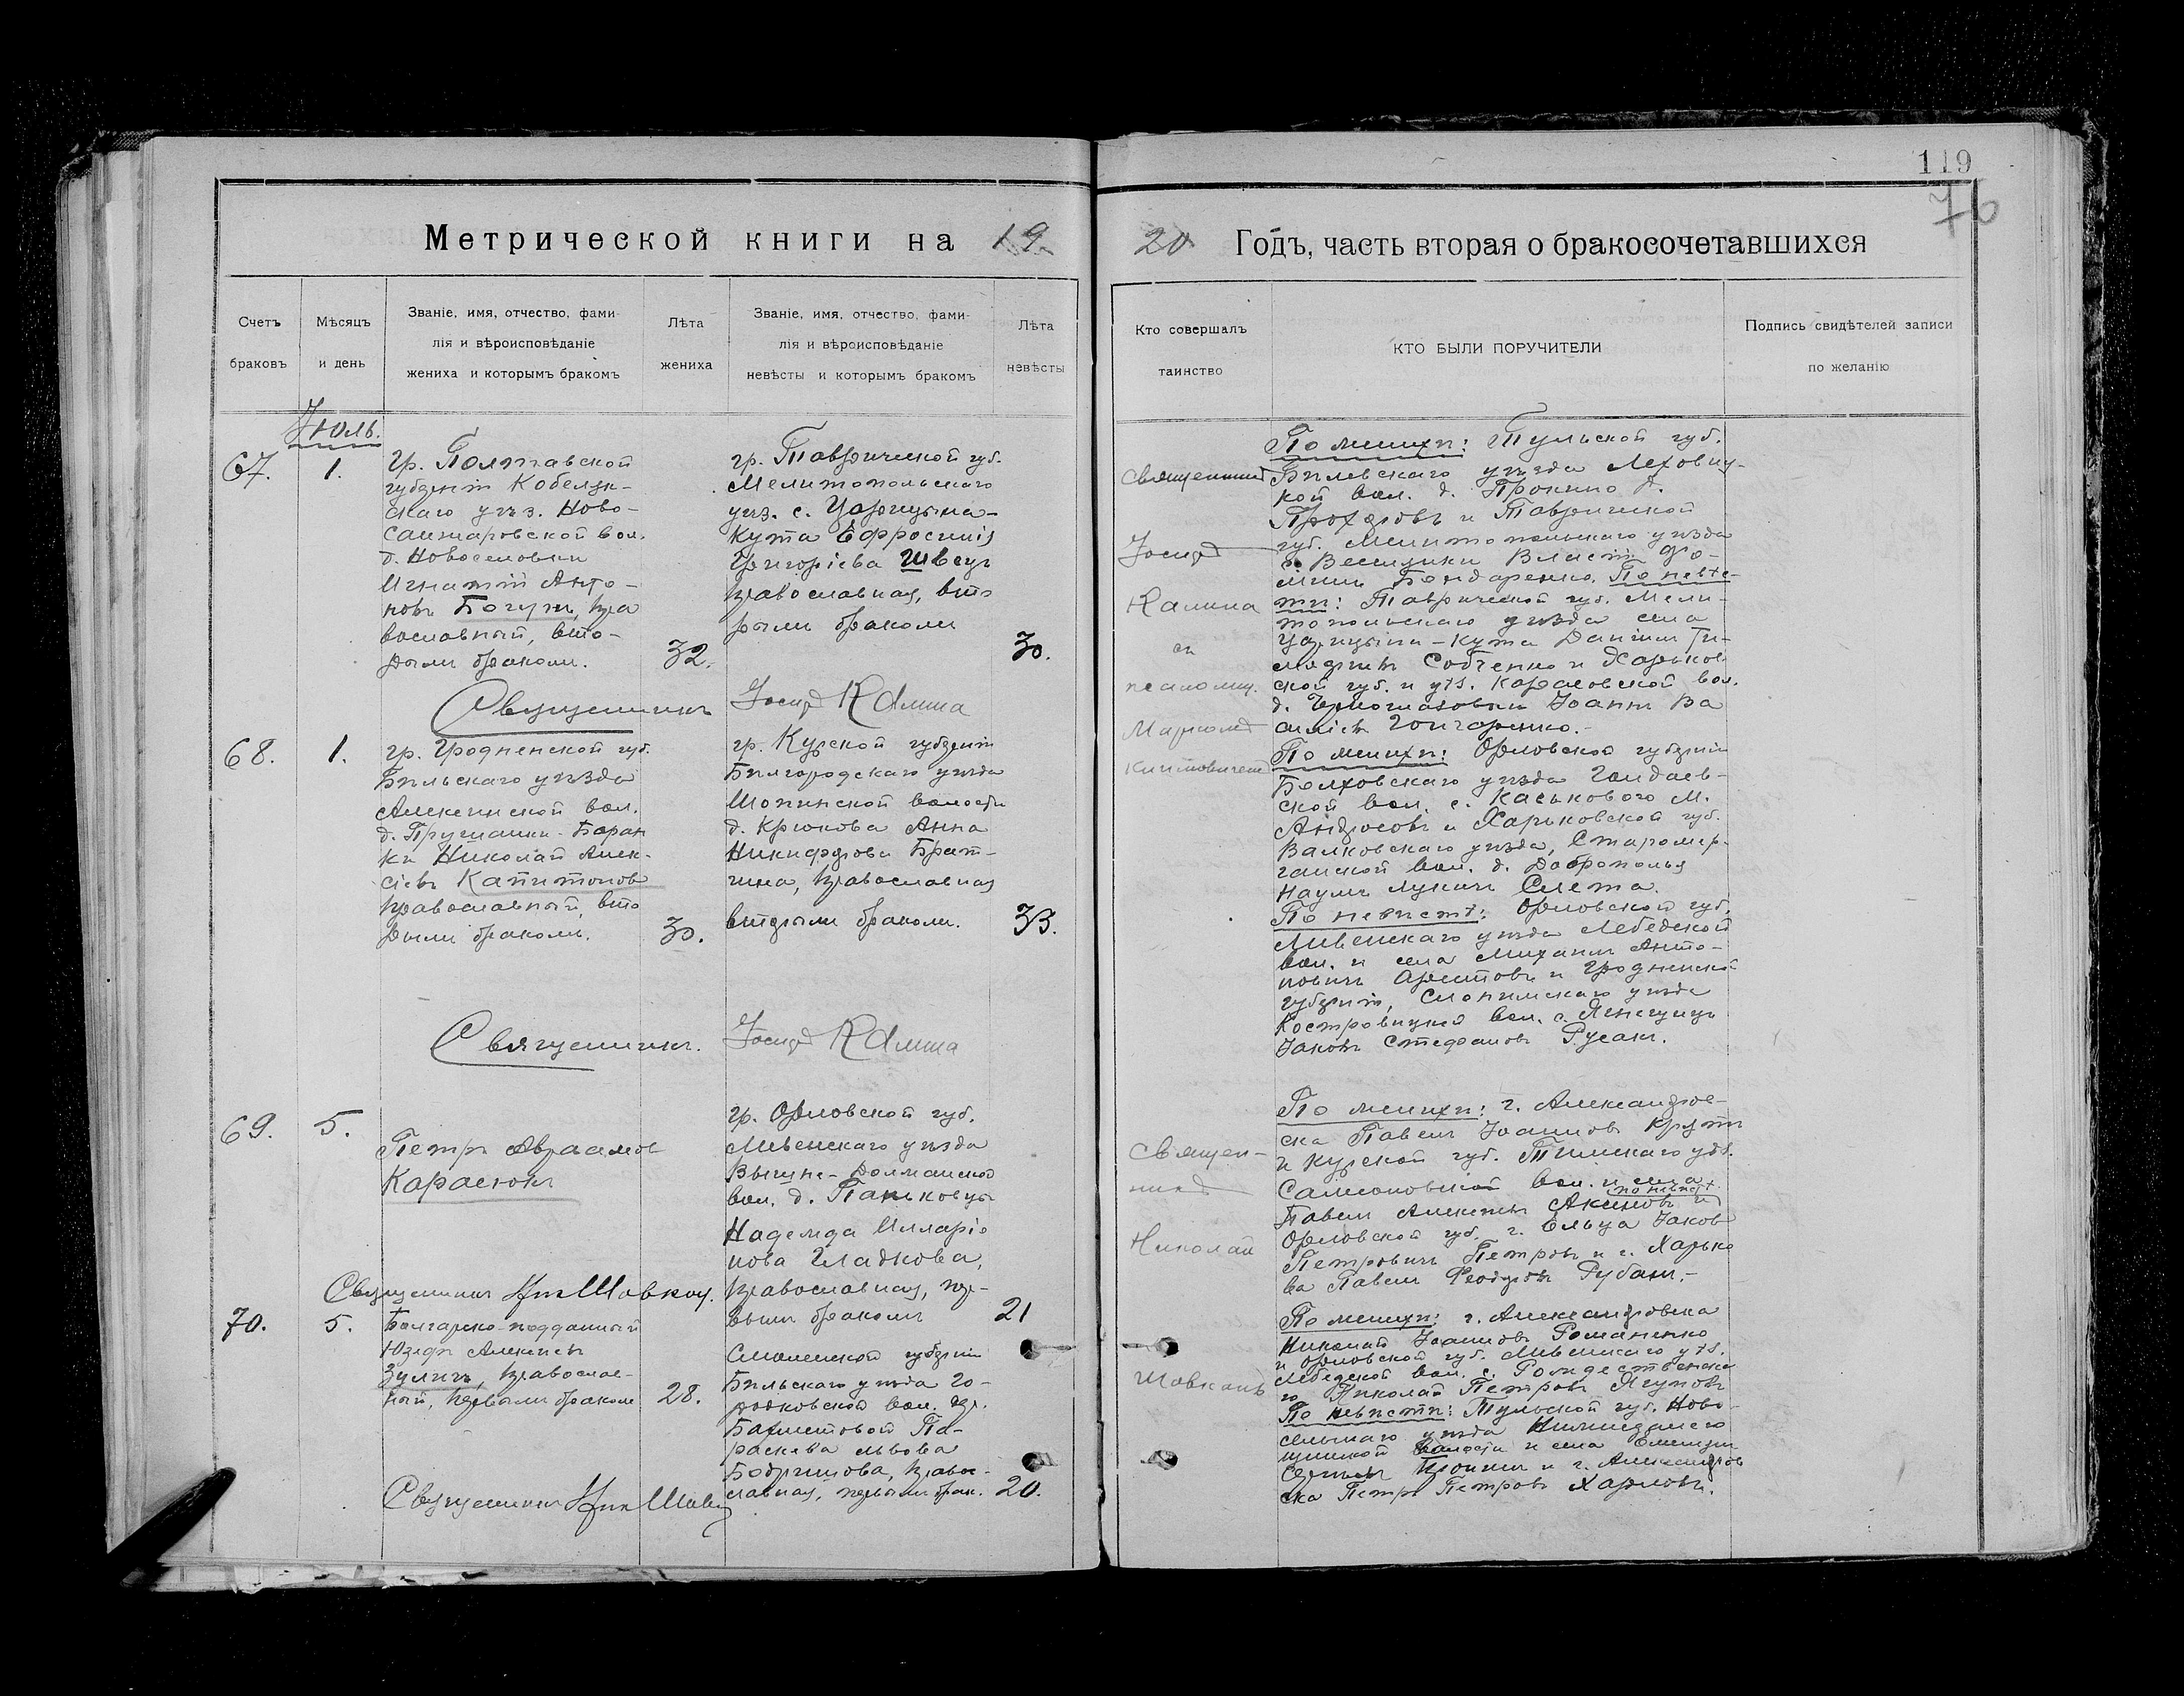 119
76
Метрической книги на 19
20 Годъ, часть вторая о бракосочетавшихся
Счетъ браковъ
Мѣсяцъ и день
Званіе, имя, отчество, фами-
лія и вѣроисповѣданіе
жениха и которымъ бракомъ
Лѣта жениха
Званіе, имя, отчество, фами-
лія и вѣроисповѣданіе
невѣсты и которымъ бракомъ
Лѣта невѣсты
Кто совершалъ таинство
КТО БЫЛИ ПОРУЧИТЕЛИ
Подпись свидѣтелей записи
по желанію
Іюль.
67.
1.
гр. Полтавской
губерніи Кобеляк-
скаго уѣз. Ново-
санжаровской вол.
д. Новоселовки
Игнатій Анто-
новъ Богуш, пра
вославный, вто-
рымъ бракомъ.
32.
гр. Таврической губ.
Мелитопольскаго
уѣз. с. Царицына-
Кута Ефросинія
Григоріева Швец
православная, вто
рымъ бракомъ
30.
Священникъ
Іосифъ
Калина
съ
псаломщ.
Маркомъ
Китовичемъ
По женихѣ: Тульской губ.
Бѣлевскаго уѣзда
кой вол. д. Пронино А.
Прохоровъ и Таврической
губ. Мелитопольскаго уѣзда
с. Веселянки Власій Фо-
мичъ Бондаренко. По невѣс-
тѣ: Таврической губ. Мели-
топольскаго уѣзда села
Царицына-Кута Даніилъ Ти-
мофѣевъ Собченко и Харьков
ской губ. и уѣз. Карасовской вол.
д. Черноглазовки Іоаннъ Ва
силіевъ Гончаренко.-
Священникъ Іосифъ Калина
68.
1.
гр. Гродненской губ.
Бѣльскаго уѣзда
Алексинской вол.
д. Пружанки-Баран
ки Николай Алек-
сіевъ Капитоновъ
православный, вто
рымъ бракомъ.
30.
гр. Курской губерніи
Бѣлгородскаго уѣзда
Шопинской волости
д. Крюкова Анна
Никифорова Брат-
чина, православная
вторымъ бракомъ.
33.
По женихѣ: Орловской губерніи
Болховскаго уѣзда
ской вол. с. Каськового М.
Андросовъ и Харьковской губ.
Валковскаго уѣзда, Старомер-
чанской вол. д. Доброполья
Наумъ Лукичъ Слета.
По невѣстѣ: Орловской губ.
Ливенскаго уѣзда Лебедской
вол. и села Михаилъ Анто-
новичъ Арестовъ и Гродненской
губерніи, Слонимскаго уѣзда
Костровицкой вол. с.
Іаковъ Стефановъ Русакъ.
Священникъ. Іосифъ Калина
69.
5.
Петръ Авраамов
Карасюкъ
гр. Орловской губ.
Ливенскаго уѣзда
Вышне-Долманской
вол. д. Паньковцы
Надежда Илларіо
нова Гладкова,
православная, пер-
вымъ бракомъ
21
Священ-
никъ
Николай
Шовкопъ
По женихѣ: г. Александров-
ска Павелъ Іоанновъ Крутъ
и Курской губ. Тимскаго уѣз.
Самсоновской вол. и села
Павелъ Алексѣевъ Акимовъ и по невѣст
Орловской губ. г. Ельца Іаковъ
Петровичъ Петровъ и г. Харько
ва Павелъ Феодоровъ Рубанъ.-
Священникъ Ник Шовкоп.
70.
5.
Болгарско-подданный
Юзефъ Алексѣевъ
Зуличъ, православ-
ный, первымъ бракомъ
28.
Смоленской губерніи
Бѣльскаго уѣзда Го-
родковской вол. дер.
Бахметовой Па-
раскева Львова
Бодричова, право-
славная, первымъ брак.
20.
По женихѣ: г. Александровска
Николай Іоанновъ Романенко
и Орловской губ. Ливенскаго уѣз.
Лебедской вол. с. Рождественска
го Николай Петровъ Ягуновъ
По невѣстѣ: Тульской губ. Ново-
сельскаго уѣзда
волости и села
Сергѣевъ и г. Александров
ска Петръ Петровъ Харловъ.
Священникъ Ник Шовк